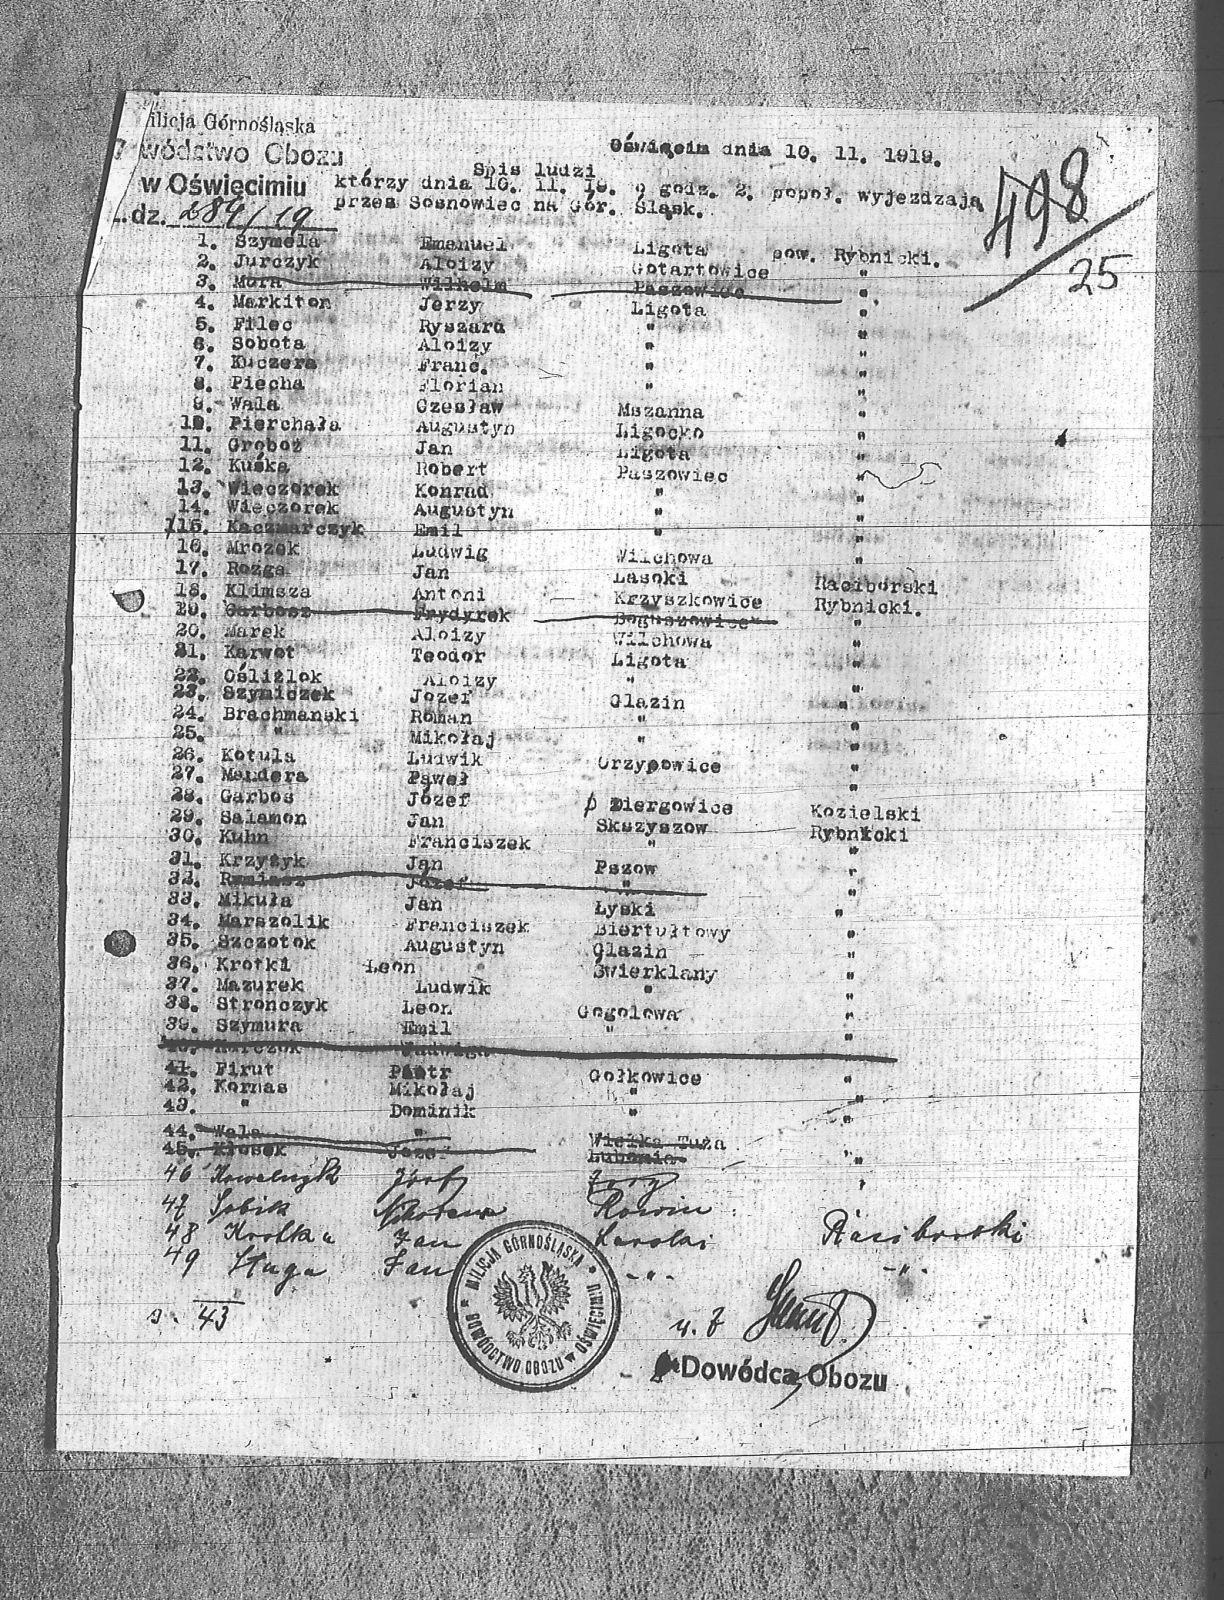 ilicja Górnośląska
wództwo Obozu
w Oświęcimiu
dz. 284/19
Oświęcim dnia 10. 11. 1919.
Spis ludzi
którzy dnia 10. 11. 19. o godz. 2. popoł. wyjezdzają
przez Sosnowiec na Gór. Śląsk.
498
25
1. Szymela Emanuel Ligota pow. Rybnicki.
2. Jurczyk Aloizy Gotartowice "
3. Mora Wilhelm Paszowiec "
4. Markiton Jerzy Ligota "
5. Filec Ryszard " "
6. Sobota Aloizy " "
7. Kuczera Franc. " "
8. Piecha Florian " "
9. Wala Czesław Mszanna "
10. Pierchała Augustyn Ligocko "
11. Groboż Jan Ligota "
12. Kuśka Robert Paszowiec "
13. Wieczorek Konrad " "
14. Wieczorek Augustyn " "
15. Kaczmarczyk Emil " "
16. Mrozek Ludwig Wilchowa "
17. Rozga Jan Lasoki Raciborski
18. Klimsza Antoni Krzyszkowice Rybnicki.
19. Garbosz Frydyrek Boguszowice "
20. Marek Aloizy Wilchowa "
21. Karwot Teodor Ligota "
22. Oślizlok Aloizy " "
23. Szymiczek Jozef Glazin "
24. Brachmanski Roman " "
25. " Mikołaj " "
26. Kotula Ludwik Orzypowice "
27. Mandera Paweł "
28. Garbos Józef Dziergowice Kozielski
29. Salamon Jan Skszyszow Rybnicki
30. Kuhn Franciszek " "
31. Krzyżyk Jan Pszow "
32. Józef " "
33. Mikuła Jan Łyski "
34. Marszolik Franciszek Biertułtowy "
35. Szczotok Augustyn Glazin "
36. Krotki Leon Świerklany "
37. Mazurek Ludwik " "
38. Stronczyk Leon Gogolowa "
39. Szymura Emil " "
40. Karczok Jadwiga
41. Firut Piotr Gołkowice "
42. Kornas Mikołaj " "
43. " Dominik "
44. Wala " Wielka Tuża
45. Kłosek Jozef Lubomia "
46 Kowalczyk Józef Żory "
47 Sobik Rowin
48 Krotka Jan Lasoki Raciborski
49 Sługa Jan - " - - " -
s. 43
MILICJA GÓRNOŚLĄSKA * DOWÓDCTWO OBOZU w OŚWIĘCIMIU *
Dowódca Obozu